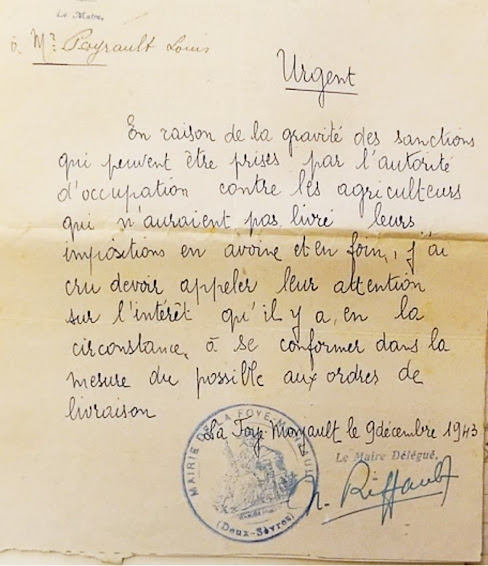 Le Maire,
à Mr Peyrault Louis
Urgent
En raison de la gravité des sanctions
qui peuvent être prises par l'autorité
d'occupation contre les agriculteurs
qui n'auraient pas livré leurs
impositions en avoine et en foin, j'ai
cru devoir appeler leur attention
sur l'intérêt qu'il y a, en la
circonstance, à se conformer dans la
mesure du possible aux ordres de
livraison
La Foye Monjault le 9 décembre 1943
Le Maire Délégué,
Riffault
MAIRIE DE LA FOYE-MONJAULT
(Deux-Sèvres)